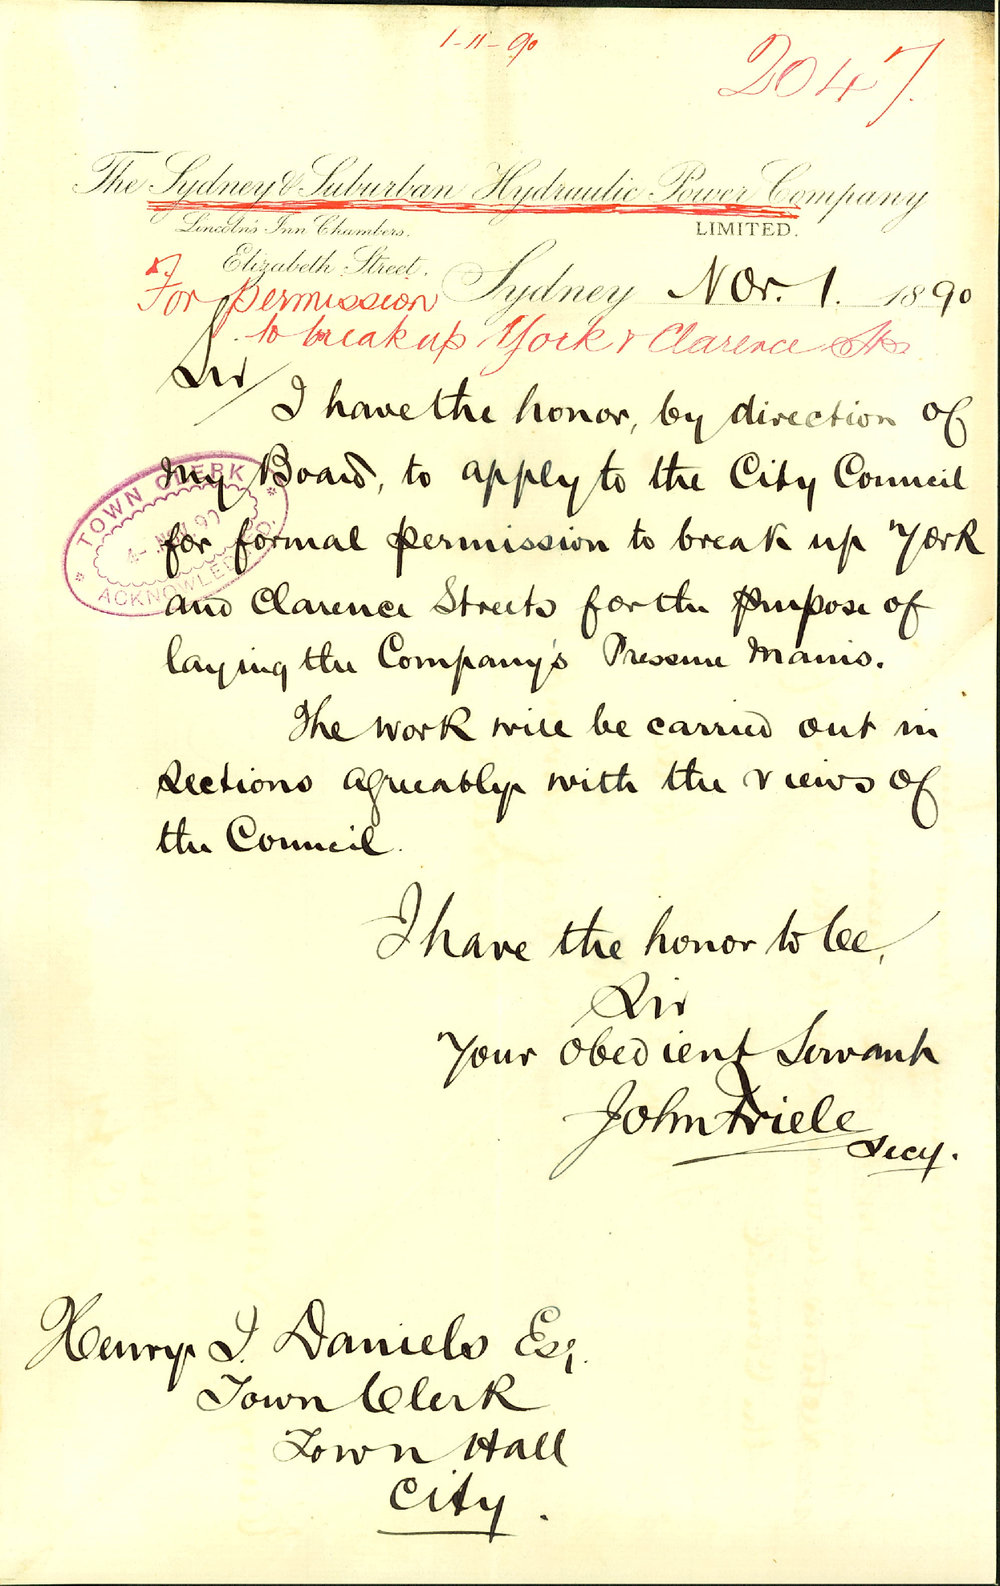 1-11-90
2047.
The Sydney & Suburban Hydraulic Power Company
LIMITED.
Lincoln's Inn Chambers.
Elizabeth Street.
Sydney Nov. 1. 1890
For permission
to break up York & Clarence Sts
Sir
I have the honor, by direction of
my Board, to apply to the City Council
for formal permission to break up York
and Clarence Streets for the purpose of
laying the Company's Pressure Mains.
The work will be carried out in
sections agreeably with the views of
the Council.
TOWN CLERK
4- NOV. 90
ACKNOWLEDGED.
I have the honor to be,
Sir
Your Obedient Servant
John Friele
Secy.
Henry J. Daniels Esq.
Town Clerk
Town Hall
City.